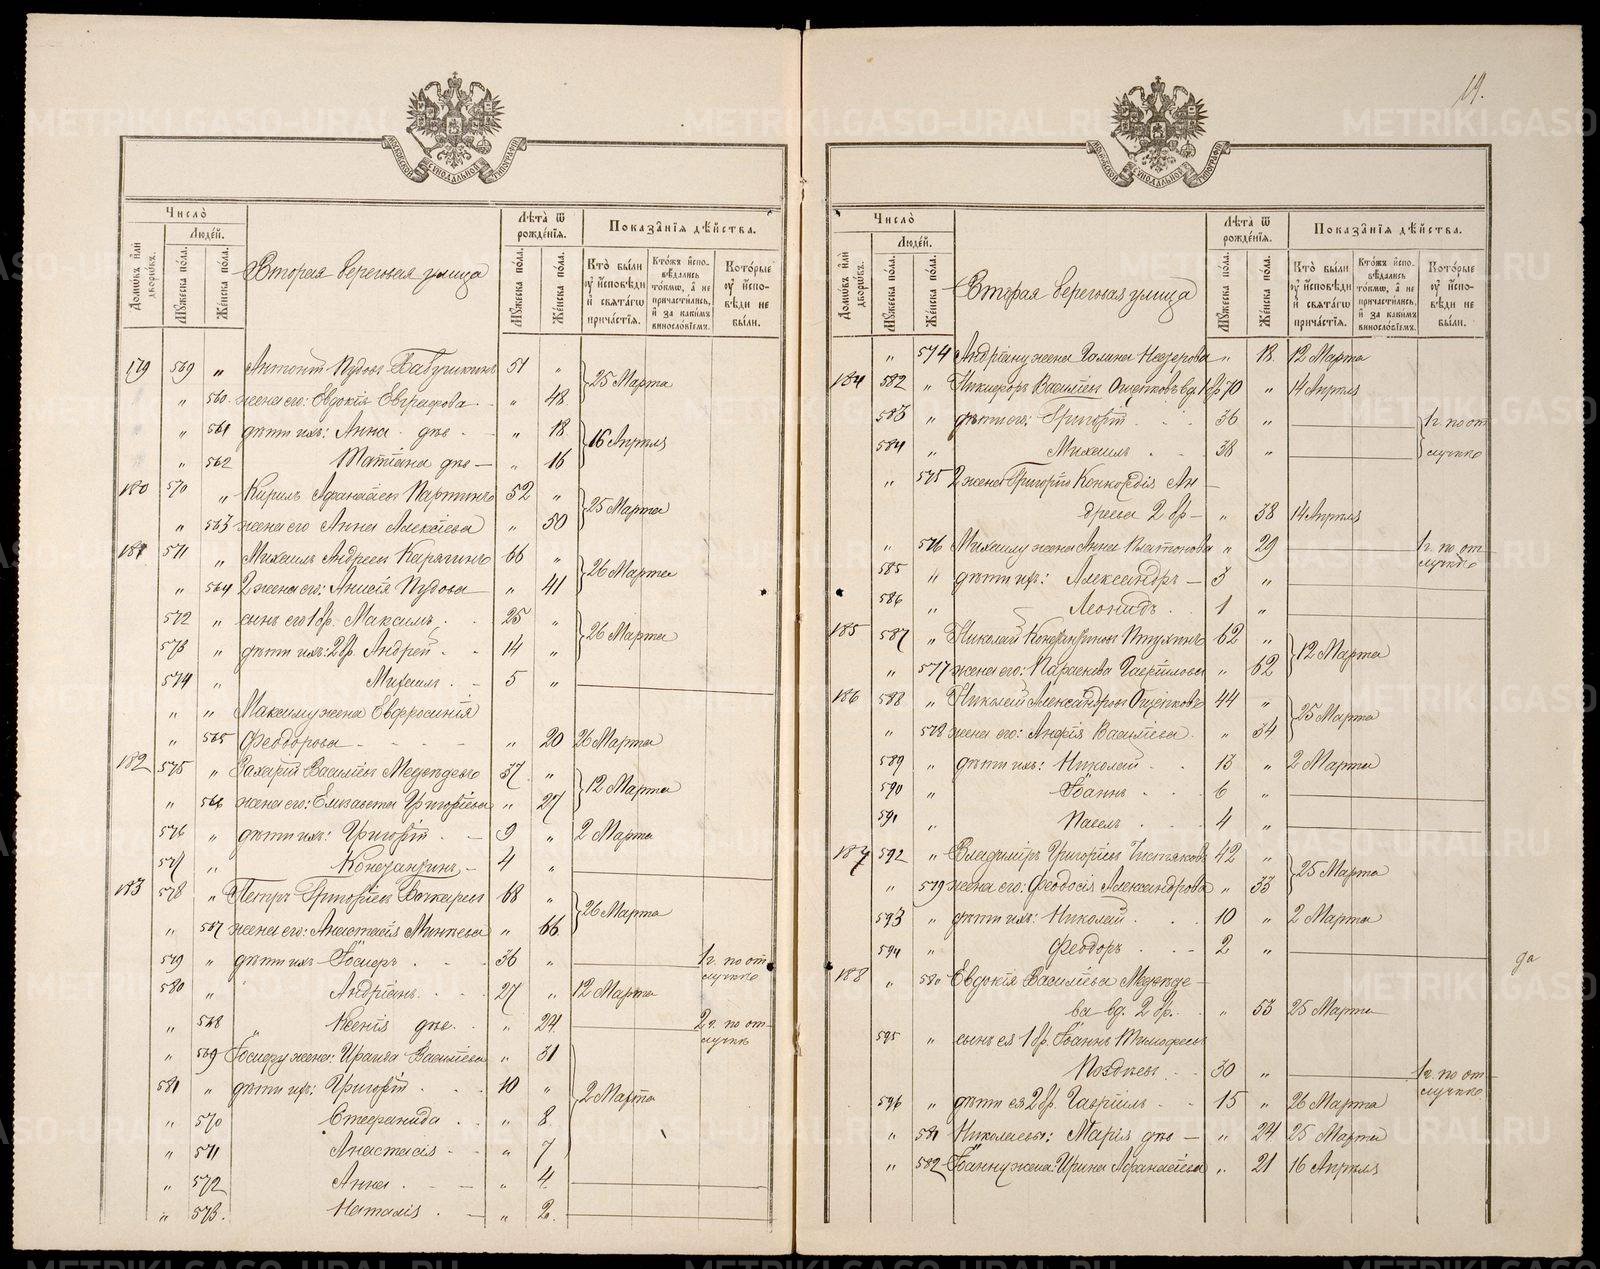 19.
МОСКОВСКОЙ СУНОДАЛЬНОЙ ТИПОГРАФІИ
Число
Людей.
Домовъ или дворовъ.
Мужеска пола.
Женска пола.
Вторая береговая улица
Лѣта ѿ рожденія.
Мужеска пола.
Женска пола.
Показанія дѣйства.
Кто были у исповѣди и святаго причастія.
Кто жъ исповѣдались токмо, а не причастились, и за какимъ винословіемъ.
Которые у исповѣди не были.
179 569 „ Антоній Пудовъ Бабушкинъ 51 „
25 Марта
„ 560. жена его: Евдокія Евграфова „ 48
„ 561 дѣти ихъ: Анна дѣв „ 18
16 Апрѣля
„ 562 Татіана дѣв — „ 16
180 570 „ Кирилъ Афанасіевъ Партинъ 52 „
25 Марта
„ 563 жена его Анна Алексіева „ 50
181 571 „ Михаилъ Андреевъ Карягинъ 66 „
26 Марта
„ 564 2 жена его: Анисія Пудова „ 41
572 „ сынъ его 1 бр. Максимъ 25 „
26 Марта
573 „ дѣти ихъ: 2 бр. Андрей 14 „
574 „ Михаилъ 5 „
„ „ Максиму жена Евфросинія
„ 565 Феодорова „ 20 26 Марта
182 575 „ Захарій Васильевъ Медвѣдевъ 37 „
12 Марта
„ 566 жена его: Елизавета Григоріева „ 27
576 „ дѣти ихъ: Григорій 9 „ 2 Марта
577 „ Константинъ 4 „
183 578 „ Петръ Григоріевъ 68 „
26 Марта
„ 567 жена его: Анастасія Минеева „ 66
579 „ дѣти ихъ Іосифъ 36 „ 1 г. по отлучкѣ
580 „ Андріанъ 27 „ 12 Марта
„ 568 „ Ксенія дѣв. „ 24 2 г. по отлучкѣ
„ 569 Іосифу жена: Ираида Васильева „ 31
581 „ дѣти ихъ: Григорій 10 „
2 Марта
„ 570 Стефанида „ 8
„ 571 Анастасія „ 7
„ 572 Анна „ 4
„ 573. Наталія „ 2.
МОСКОВСКОЙ СУНОДАЛЬНОЙ ТИПОГРАФІИ
Число
Людей.
Домовъ или дворовъ.
Мужеска пола.
Женска пола.
Вторая береговая улица
Лѣта ѿ рожденія.
Мужеска пола.
Женска пола.
Показанія дѣйства.
Кто были у исповѣди и святаго причастія.
Кто жъ исповѣдались токмо, а не причастились, и за какимъ винословіемъ.
Которые у исповѣди не были.
„ 574 Андріану жена Галина Назарова „ 18 12 Марта
184 582 „ Никифоръ Васильевъ Ощепковъ вд. 1 бр 70 „ 14 Апрѣля
583 „ дѣти его: Григорій 36 „
1 г. по отлучкѣ
584 „ Михаилъ 38 „
„ 575 2 жена Григорія Конкордія Андреева 2 бр — „ 38 14 Апрѣля
„ 576 Михаилу жена Анна Платонова „ 29 1 г. по отлучкѣ
585 „ дѣти ихъ: Александръ — 3 „
586 „ Леонидъ 1 „
185 587 „ Николай Константиновъ Птухинъ 62 „
12 Марта
„ 577 жена его: Параскева Гавріилова „ 62
186 588 „ Николай Александровъ Ощепковъ 44 „
25 Марта
„ 578 жена его: Анфія Васильева „ 34
589 „ дѣти ихъ: Николай 13 „ 2 Марта
590 „ Іоаннъ 6 „
591 „ Павелъ 4 „
187 592 „ Владиміръ Григоріевъ Чистяковъ 42 „
25 Марта
„ 579 жена его: Феодосія Александрова „ 33
593 „ дѣти ихъ: Николай 10 „ 2 Марта
594 „ Феодоръ 2 „
188 „ 580 Евдокія Васильева Медвѣдева вд. 2 бр. „ 53 25 Марта
595 „ сынъ ея 1 бр. Іоаннъ Тимофеевъ
Поздѣевъ 30 „ 1 г. по отлучкѣ
596 „ дѣти ея 2 бр. Гавріилъ 15 „ 26 Марта
„ 581 Николаевы: Марія дѣв — „ 24 25 Марта
„ 582 Іоанну жена: Ирина Афанасіева „ 21 16 Апрѣля
да
METRIKI.GASO-URAL.RU